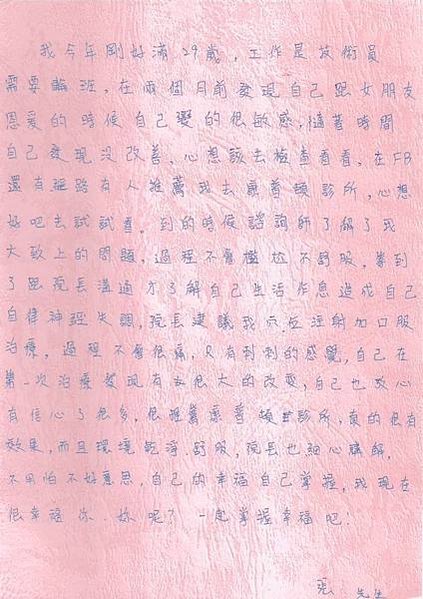 我今年剛好滿29歲，工作是技術員
需要輪班，在兩個月前發現自己跟女朋友
恩愛的時候自己變的很敏感，隨著時間
自己發現沒改善，心想該去檢查看看，在FB
還有網路有人推薦我去薦普頓診所，心想
好吧去試試看。到的時候諮詢師了解了我
大致上的問題，過程不會尷尬不舒服，等到
了跟院長溝通才了解自己生活作息造成自己
自律神經失調，院長建議我 注射加口服
治療，過程不會很痛，只有刺刺的感覺，自己在
第一次治療發現有 很大的改變，自己也放心
有信心了很多，很推薦 普頓 診所，真的很有
效果，而且環境乾淨舒服，院長也細心講解，
不用怕不好意思，自己的幸福自己掌握，我現在
很幸福你、妳呢？一起掌握幸福吧！
張 先生